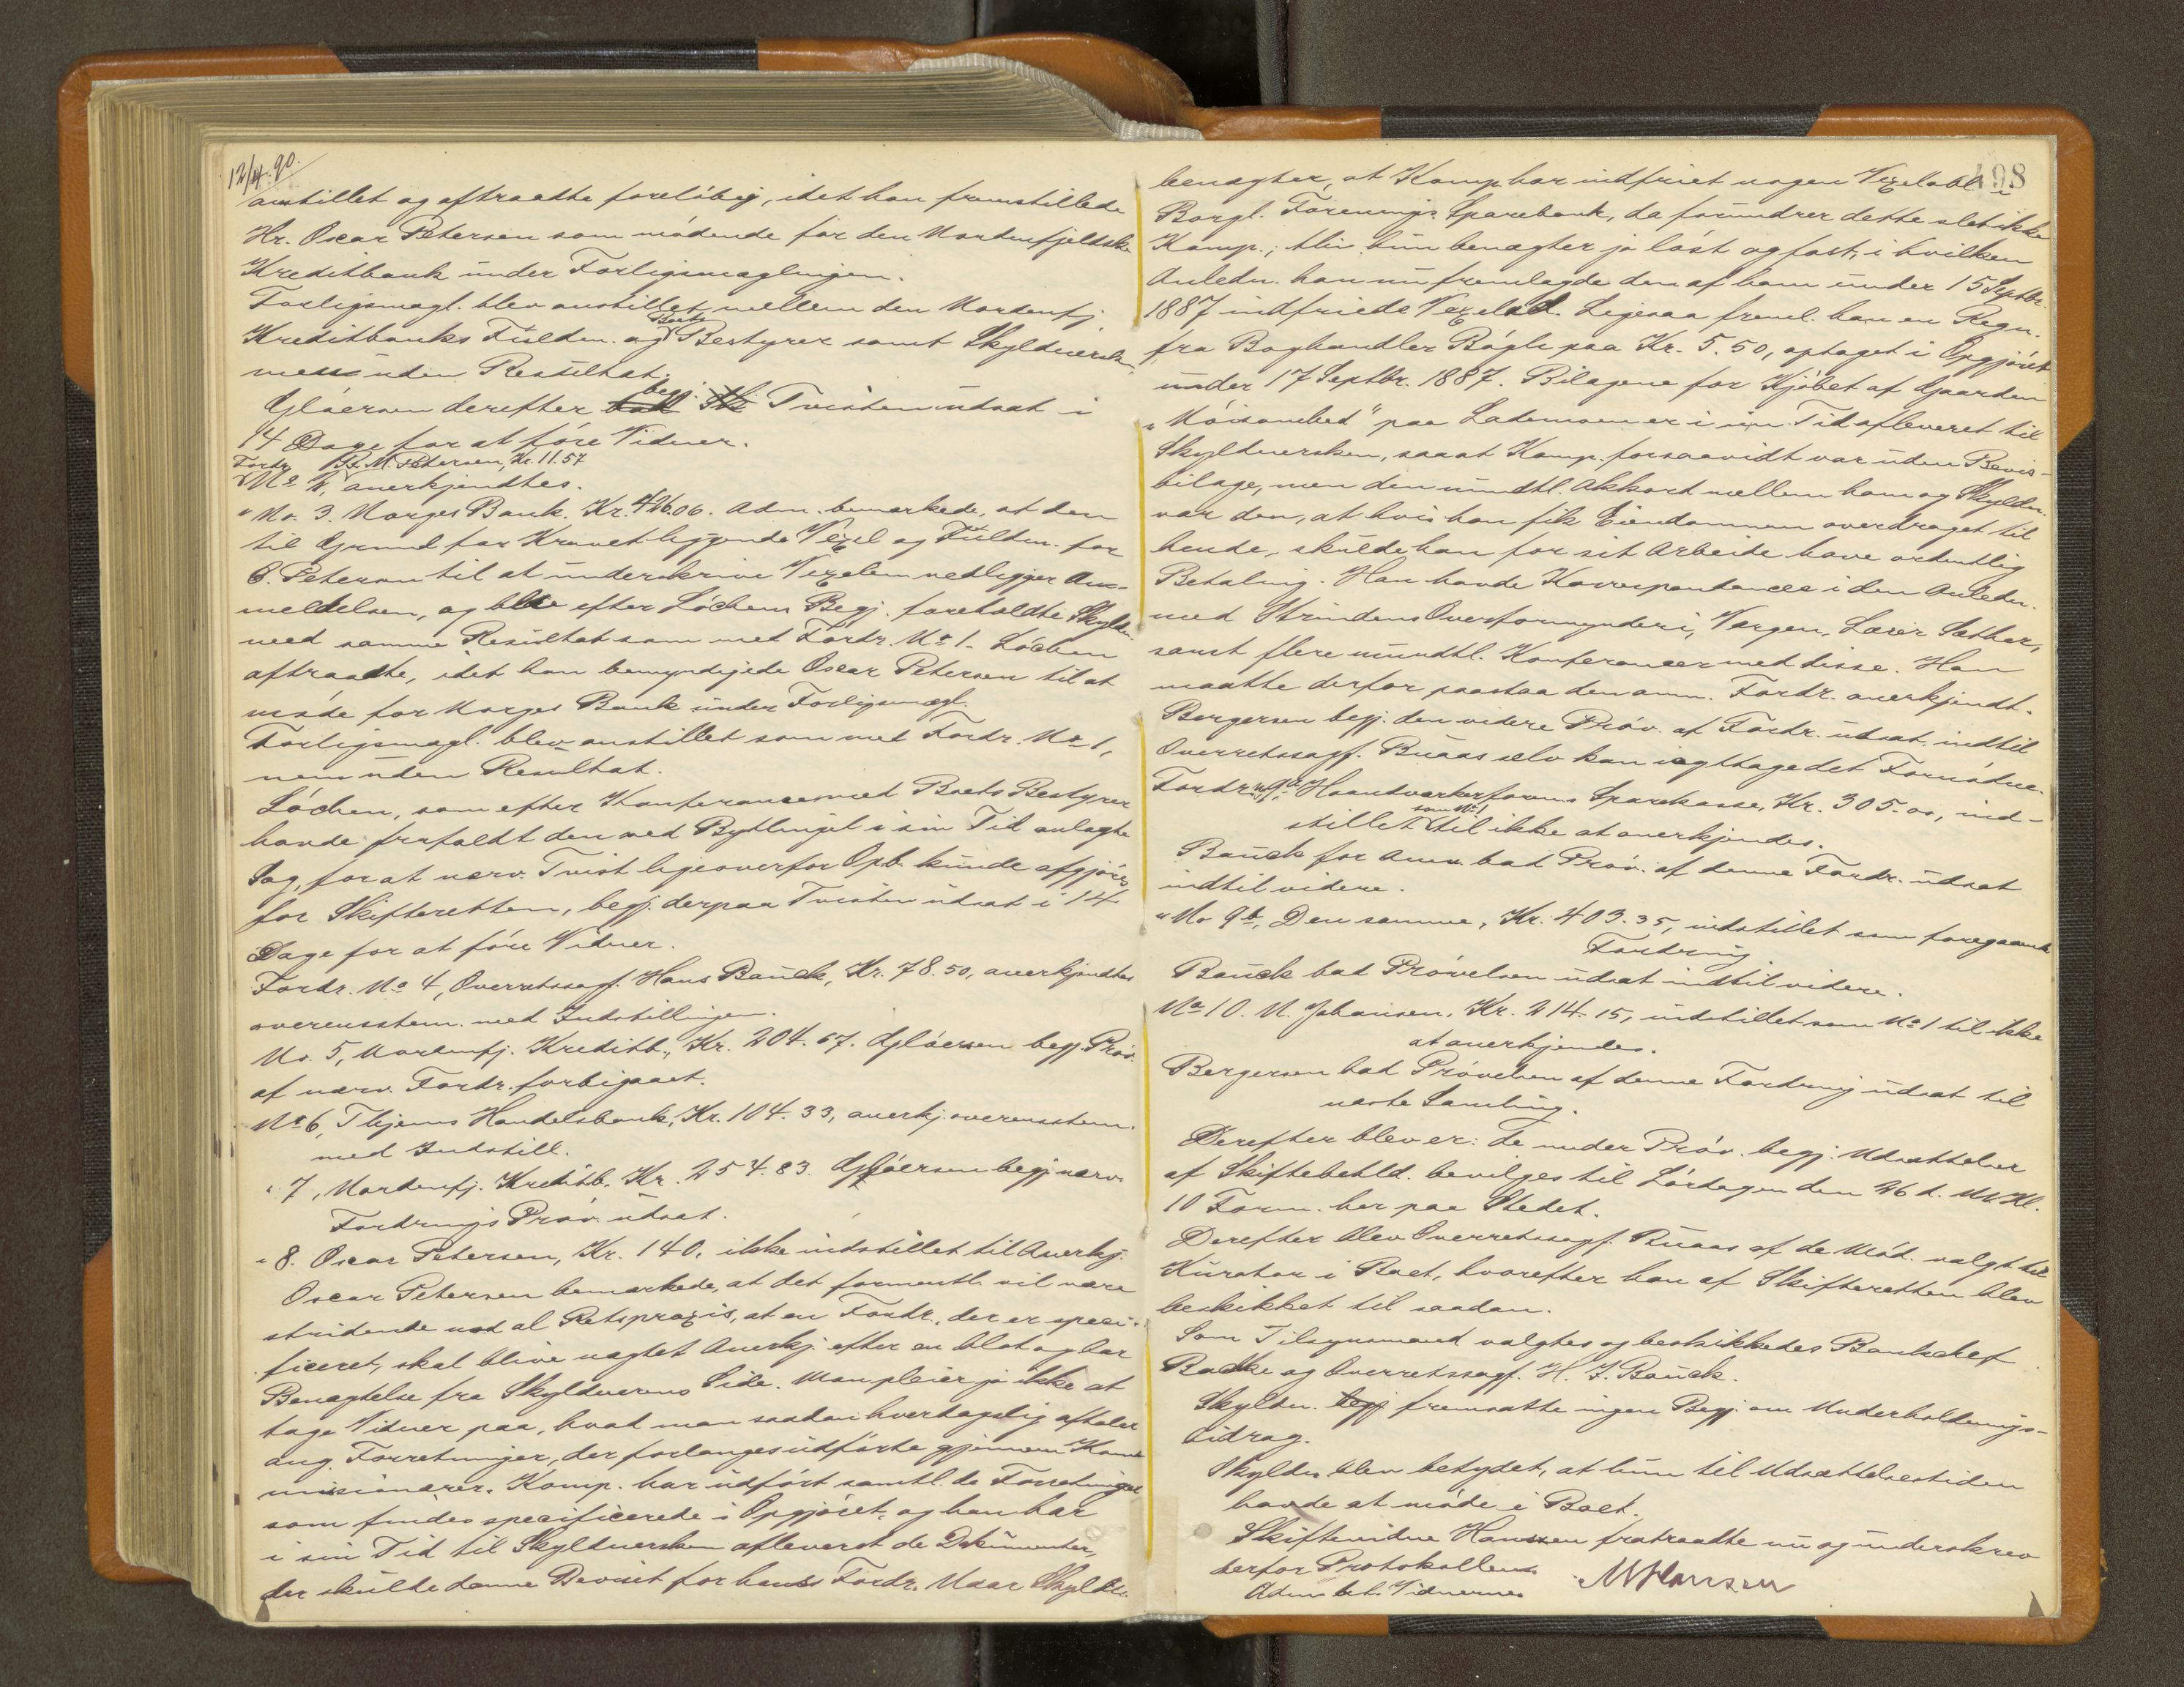 12/4. 90.
anstillet og aftraadte foreløbig, idet han fremstillede
Hr. Oscar Petersen som mødende for den Nordenfjeldske
Kreditbank under Forligsmæglingen.
Forligsmægl. blev anstillet mellem den Nordenfj.
Kreditbanks Fuldm. og Boets Bestyrer samt Skyldnersken
men uden Resultat.
Gløersen derefter begj. Tvisten udsat i
14 Dage for at føre Vidner.
Fordr. No 2, Br. M. Petersen, Kr. 11.57
anerkjendtes.
" No. 3. Norges Bank. Kr. 426.06. Adm. bemærkede, at den
til Grund for Kravet liggende Vexel og Fuldm. for
C. Petersen til at underskrive Vexelen vedligger An-
meldelsen, og blev efter Løchens Begj. foreholdte Skyldn.
med samme Resultat som med Fordr. No 1. Løchen
aftraadte, idet han bemyndigede Oscar Petersen til at
møde for Norges Bank under Forligsmægl.
Forligsmægl. blev anstillet som med Fordr. No 1,
men uden Resultat.
Løchen, som efter Konference med Boets Bestyrer
havde frafaldt den ved Bythinget i sin Tid anlagte
Sag, for at nærv. Tvist ligeoverfor Opb. kunde afgjøres
for Skifteretten, begj. derpaa Tvisten udsat i 14
Dage for at føre Vidner.
Fordr. No 4, Overretssagf. Hans Bauck, Kr. 78.50, anerkjendtes
overensstem. med Indstillingen.
No. 5, Nordenfj. Kreditb., Kr. 204.67. Gløersen begj. Prøv.
af nærv. Fordr. forbigaaet.
No 6, Thjems Handelsbank, Kr. 104.33, anerkj. overensstem.
med Indstill.
" 7, Nordenfj. Kreditb. Kr. 254.83. Gløersen begj. nærv.
Fordrings Prøv. udsat.
" 8. Oscar Petersen, Kr. 140, ikke indstillet til Anerkj.
Oscar Petersen bemærkede, at det formentl. vil være
stridende mod al Retspraxis, at en Fordr., der er speci-
ficeret, skal blive nægtet Anerkj. efter en blot og bar
Benægtelse fra Skyldnerens Side. Man pleier jo ikke at
tage Vidner paa, hvad man saadan hverdagslig aftaler
ang. Forretninger, der forlanges udførte gjennem Kom-
missionærer. Komp. har udført samtl. de Forretninger,
som findes specificerede i Opgjøret, og han har
i sin Tid til Skyldnersken afleveret de Dokumenter,
der skulde danne Beviset for hans Fordr. Naar Skyldn.
198
benægter, at Komp. har indfriet nogen Vexelobl. i
Borgl. Forenings Sparebank, da forundrer dette slet ikke
Komp.; thi hun benægter jo løst og fast, i hvilken
Anledn. han nu fremlagde den af ham under 15 Septbr.
1887 indfriede Vexel. Ligesaa freml. han en Regn.
fra Boghandler Bøgh paa Kr. 5.50, optaget i Opgjøret
under 17 Septbr. 1887. Bilagene for Kjøbet af Gaarden
"Møisomhed" paa Lademoen er i sin Tid afleveret til
Skyldnersken, saaat Komp. forsaavidt var uden Bevis-
bilage, men den mundtl. Akkord mellem ham og Skyldn.
var den, at hvis han fik Eiendommen overdraget til
hende, skulde han for sit Arbeide have ordentlig
Betaling. Han havde Korrespondance i den Anledn.
med Strindens Overformynderi, Værgen, Lærer Sæther,
samt flere mundtl. Konferancer med disse. Han
maatte derfor paastaa den anm. Fordr. anerkjendt.
Bergersen begj. den videre Prøv. af Fordr. udsat indtil
Overretssagf. Buaas selv kan iagttage det Fornødne.
Fordr. No 9a Haandværkerforens Sparekasse, Kr. 305.00, ind-
stillet som No 1 til ikke at anerkjendes.
Bauck for Anm. bad Prøv. af denne Fordr. udsat
indtil videre.
" No 9b, Den samme, Kr. 403.35, indstillet som foregaaende
Fordring
Bauck bad Prøvelsen udsat indtil videre.
No 10. N. Johansen, Kr. 214.15, indstillet som No 1 til ikke
at anerkjendes.
Bergersen bad Prøvelsen af denne Fordring udsat til
næste Samling.
Derefter blev er: de under Prøv. begj. Udsættelser
af Skiftebehld. bevilges til Lørdagen den 26 d. M. Kl.
10 Form. her paa Stedet.
Derefter blev Overretssagf. Buaas af de Mød. valgt til
Kurator i Boet, hvorefter han af Skifteretten blev
beskikket til saadan.
Som Tilsynsmænd valgtes og beskikkedes Bankchef
Backe og Overretssagf. H. J. Bauck.
Skyldn. fremsatte ingen Begj. om Underholdnings-
bidrag.
Skyldn. blev betydet, at hun til Udsættelsestiden
havde at møde i Boet.
Skiftevidne Hanssen fratraadte nu og underskrev
derfor Protokollen. M Hanssen
Adm. bet. Vidnerne